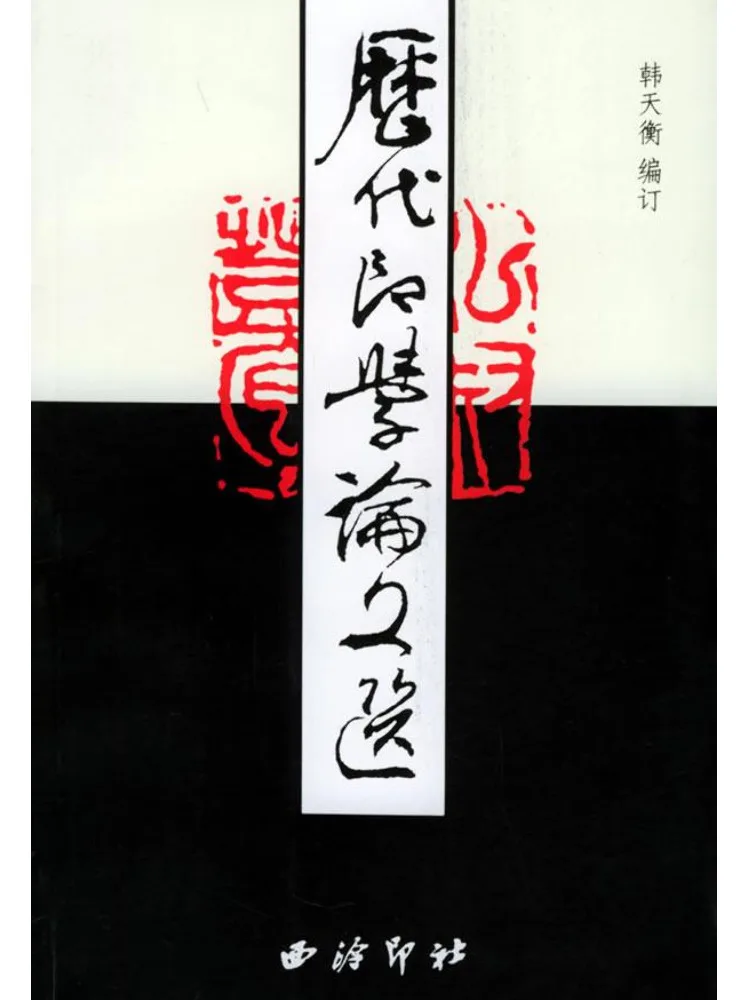 韩天衡 编订
歷代印學論文選
西泠印社